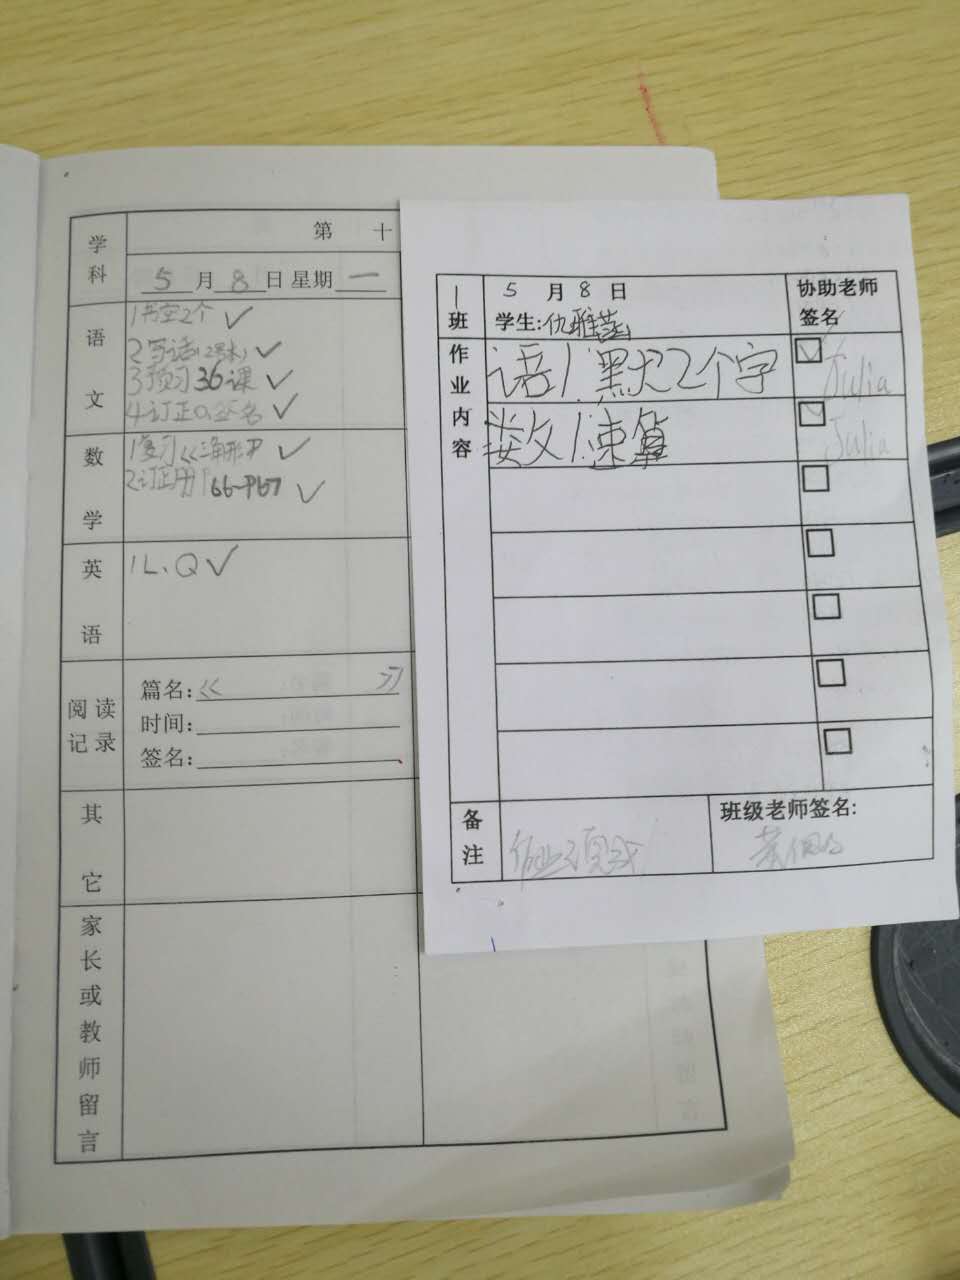 学科
第 十
5月8日 星期一
语文
1书空2个 ✓
2写话(2号本) ✓
3预习36课 ✓
4订正0.签名 ✓
数学
1复习《三角形》 ✓
2订正册P66~P67 ✓
英语
1L、Q ✓
阅读记录
篇名:《 》
时间:
签名:
其它
家长或教师留言
一班
5 月 8 日
学生:仇雅
协助老师签名
作业内容
语1.默2个字
Julia
数1.速算
Julia
备注
作业
班级老师签名: